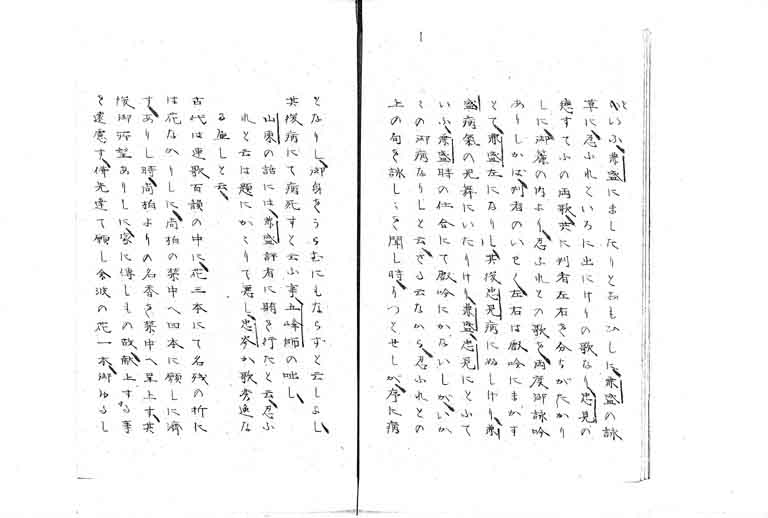 1
といふ兼盛にましたりとおもひしに兼盛の詠
草に忍ふれといろに出にけりの歌なり忠見の
恋すてふの両歌共に判者左右を分ちがたかり
しに御簾の内より忍ふれとの歌を両度御詠吟
ありしかば判者のいはく左右は叡吟にまかす
とて兼盛左になりし其後忠見病にぬしけり兼
盛病気の見舞にいたりけり兼盛忠見にとふて
いふ兼盛時の仕合にて叡吟にかないしがいか
この御病なりしと云さる云なから忍ふれとの
上の句を詠しを聞し時りつとせしが序に病
となりし御身をうらむにもならずと云しよし
其後病にて病死すと云ふ事五峰師の咄し
山東の話には兼盛評者に賄を行たと云忍ふ
れと云は題にかゝりて悪し忠岑か歌秀逸な
る並しと云
古代は連歌百韻の中に花三本にて名残の折に
は花なかりしに肖柏の禁中へ四本に願しに済
すありし時肖柏よりの名香を禁中へ呈上す其
後御所望ありしに家に伝しもの故献上する事
を遠慮す併先達て願し余波の花一本御ゆるし